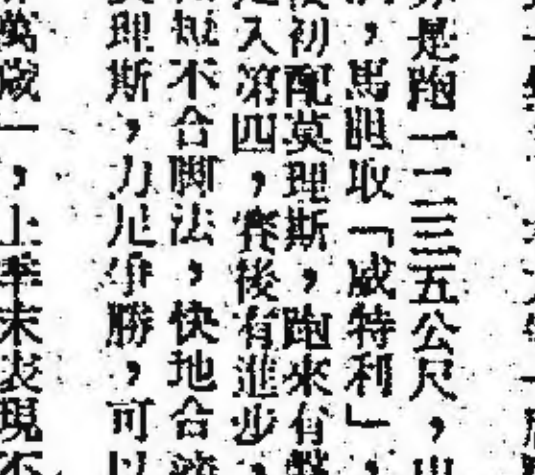 是跑一二三五公尺，
，馬眼取「威特利」，
初配莫理斯，跑來有
入第四，賽後有進步，
短不合脚法，快地合
理斯，力尼爭勝，可以
萬歲一，上季末表現不